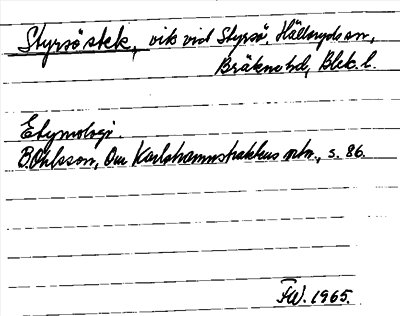 Styrsöstek, vik vid Styrsö, Hällaryds sn,
Bräkne hd, Blek. l.
Etymologi.
B. Ohlsson, Om Karlshamnstraktens ortn., s. 86.
FW. 1965.